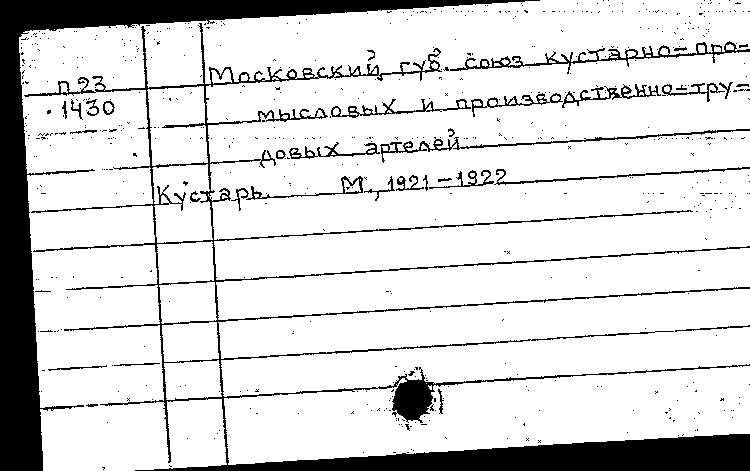 п 23
1430
Московский губ. союз кустарно-про-
мысловых и производственно-тру-
довых артелей
Кустарь. М., 1921-1922